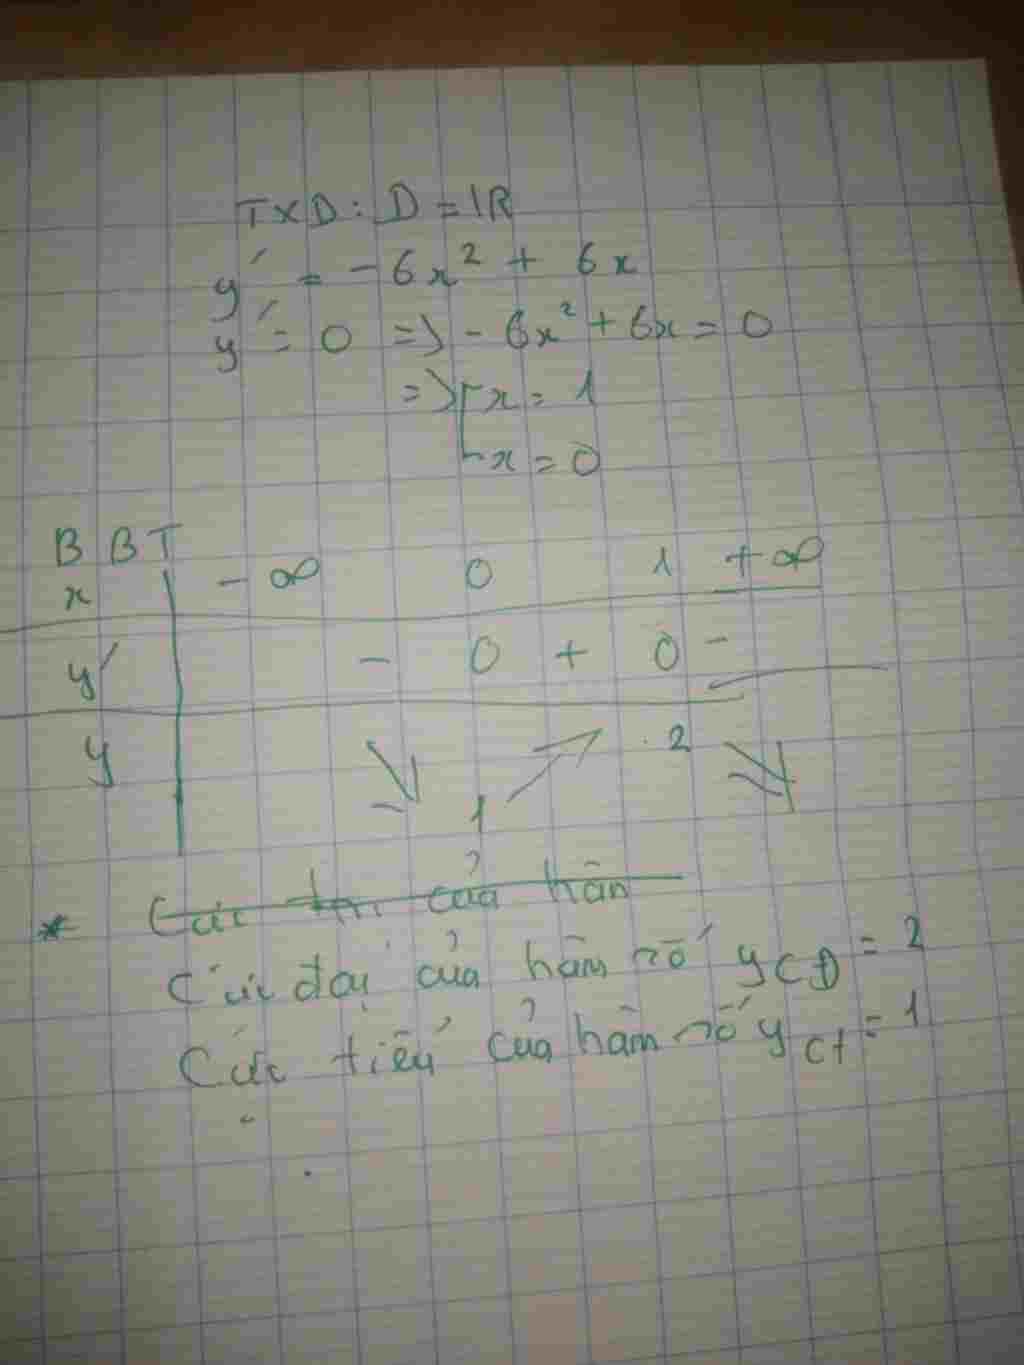 TXD: D = IR
y' = -6x² + 6x
y' = 0 => -6x² + 6x = 0
=> [ x = 1
x = 0
BBT
x -∞ 0 1 +∞
y' - 0 + 0 -
y ↘ 1 ↗ 2 ↘
* Cực trị của hàn
Cực đại của hàm số yCĐ = 2
Cức tiểu của hàm số yct = 1